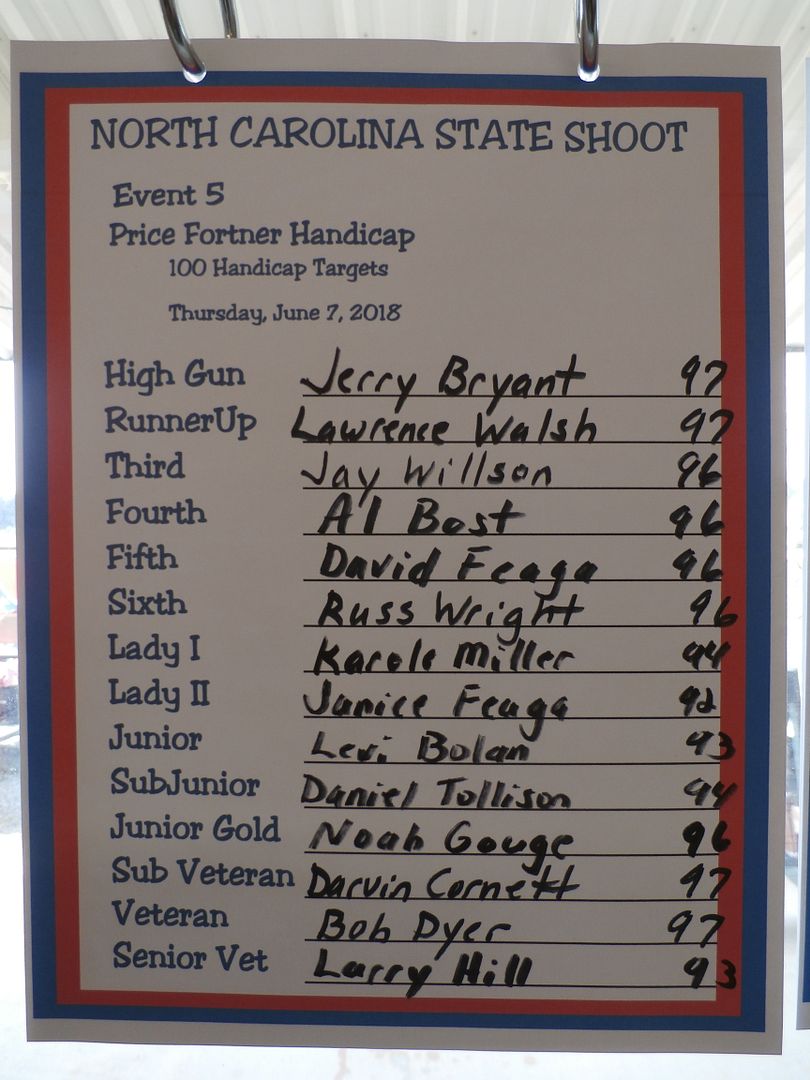 NORTH CAROLINA STATE SHOOT
Event 5
Price Fortner Handicap
100 Handicap Targets
Thursday, June 7, 2018
High Gun Jerry Bryant 97
RunnerUp Lawrence Walsh 97
Third Jay Willson 96
Fourth Al Bost 96
Fifth David Feaga 96
Sixth Russ Wright 96
Lady I Karole Miller 94
Lady II Janice Feaga 92
Junior Levi Bolan 93
SubJunior Daniel Tollison 94
Junior Gold Noah Gouge 96
Sub Veteran Darvin Cornett 97
Veteran Bob Dyer 97
Senior Vet Larry Hill 93